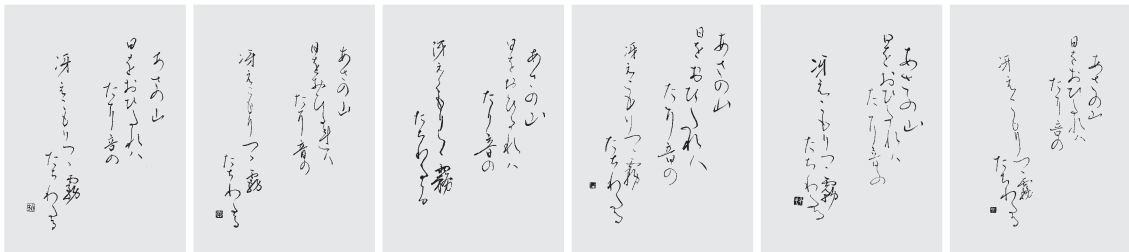 あさの山
日をおひたれハ
たに音の
冴えこもりつゝ霧
たちわたる
あさの山
日をおひたれハ
たに音の
冴えこもりつゝ霧
たちわたる
あさの山
日をおひたれハ
たに音の
冴えこもりつゝ霧
たちわたる
あさの山
日をおひたれハ
たに音の
冴えこもりつゝ霧
たちわたる
あさの山
日をおひたれハ
たに音の
冴えこもりつゝ霧
たちわたる
あさの山
日をおひたれハ
たに音の
冴えこもりつゝ霧
たちわたる